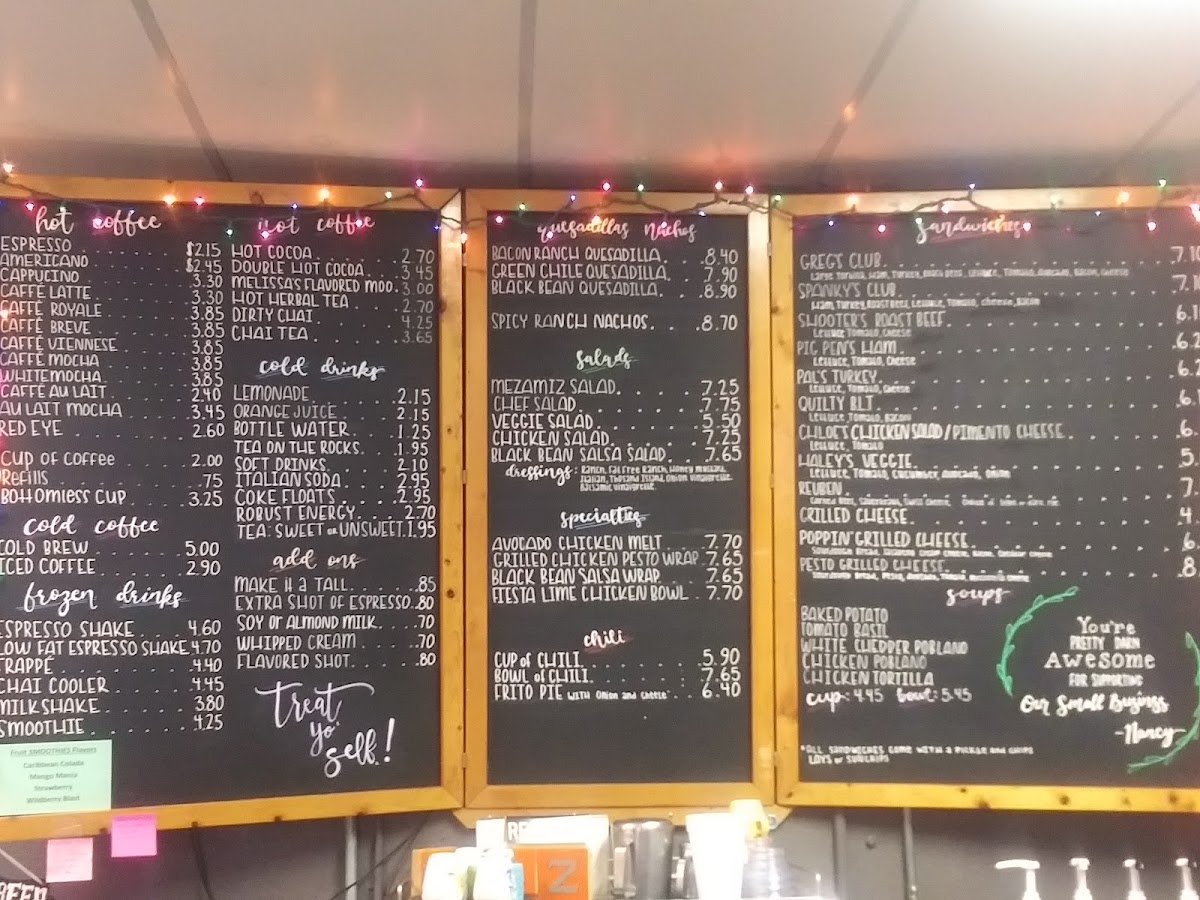 hot coffee
ESPRESSO $2.15
AMERICANO $2.45
CAPPUCINO 3.30
CAFFÉ LATTE 3.30
CAFFÉ ROYALE 3.85
CAFFÉ BREVE 3.85
CAFFÉ VIENNESE 3.85
CAFFÉ MOCHA 3.85
WHITE MOCHA 3.85
CAFFÉ AU LAIT 2.40
AU LAIT MOCHA 3.45
RED EYE 2.60
CUP OF COFFEE 2.00
Refills .75
BOTTOMLESS CUP 3.25
cold coffee
COLD BREW 5.00
ICED COFFEE 2.90
frozen drinks
ESPRESSO SHAKE 4.60
LOW FAT ESPRESSO SHAKE 4.70
FRAPPÉ 4.40
CHAI COOLER 4.45
MILKSHAKE 3.80
SMOOTHIE 4.25
Fruit SMOOTHIES Flavors
Caribbean Colada
Mango Mania
Strawberry
Wildberry Blast
hot coffee
HOT COCOA 2.70
DOUBLE HOT COCOA 3.45
MELISSA'S FLAVORED MOO 3.00
HOT HERBAL TEA 2.70
DIRTY CHAI 4.25
CHAI TEA 3.65
cold drinks
LEMONADE 2.15
ORANGE JUICE 2.15
BOTTLE WATER 1.25
TEA ON THE ROCKS 1.95
SOFT DRINKS 2.10
ITALIAN SODA 2.95
COKE FLOATS 2.95
ROBUST ENERGY 2.70
TEA: SWEET or UNSWEET 1.95
add ons
MAKE it a TALL .85
EXTRA SHOT OF ESPRESSO .80
SOY or ALMOND MILK .70
WHIPPED CREAM .70
FLAVORED SHOT .80
Treat
yo'
self!
quesadillas Nachos
BACON RANCH QUESADILLA 8.40
GREEN CHILE QUESADILLA 7.90
BLACK BEAN QUESADILLA 8.90
SPICY RANCH NACHOS 8.70
Salads
MEZAMIZ SALAD 7.25
CHEF SALAD 7.75
VEGGIE SALAD 5.50
CHICKEN SALAD 7.25
BLACK BEAN SALSA SALAD 7.65
dressings: Ranch, Fat Free Ranch, Honey Mustard,
Italian, Thousand Island, Onion Vinaigrette,
Balsamic Vinaigrette
specialties
AVOCADO CHICKEN MELT 7.70
GRILLED CHICKEN PESTO WRAP 7.65
BLACK BEAN SALSA WRAP 7.65
FIESTA LIME CHICKEN BOWL 7.70
chili
CUP of CHILI 5.90
BOWL of CHILI 7.65
FRITO PIE WITH Onion and Cheese 6.40
Sandwiches
GREG'S CLUB 7.
Large Tortilla, Ham, Turkey, Lettuce, Tomato, Avocado, Bacon, Cheese
SPANKY'S CLUB 7.
Ham, Turkey, Roast Beef, Lettuce, Tomato, Cheese, Bacon
SHOOTER'S ROAST BEEF 6.
Lettuce, Tomato, Cheese
PIG PEN'S HAM 6.2
Lettuce, Tomato, Cheese
PAL'S TURKEY 6.2
Lettuce, Tomato, Cheese
QUILTY BLT 6.
Lettuce, Tomato, Bacon
CHLOE'S CHICKEN SALAD / PIMENTO CHEESE 6.
Lettuce, Tomato
HALEY'S VEGGIE 5.
Lettuce, Tomato, Cucumber, Avocado, Onion
REUBEN 7.
Corned Beef, Sauerkraut, Swiss Cheese
GRILLED CHEESE 4.
POPPIN' GRILLED CHEESE 6.
Sourdough Bread, Jalapeno Cream Cheese, Bacon, Cheddar Cheese
PESTO GRILLED CHEESE 8.
Sourdough Bread, Pesto, Avocado, Tomato, Mozzarella Cheese
soups
BAKED POTATO
TOMATO BASIL
WHITE CHEDDER POBLANO
CHICKEN POBLANO
CHICKEN TORTILLA
cup: 4.45 bowl: 5.45
You're
PRETTY DARN
AWESOME
FOR SUPPORTING
Our Small Business
-Nancy
*ALL SANDWICHES COME WITH A PICKLE AND CHIPS
LAYS or SUNCHIPS